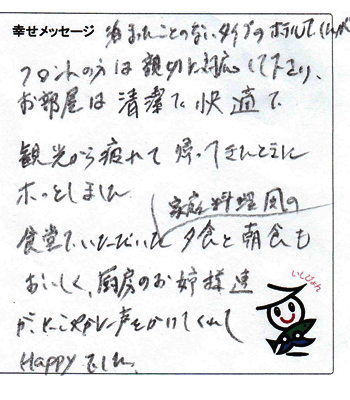 幸せメッセージ 泊まったことのないタイプのホテルでしたが
フロントの方は親切に対応して下さり、
お部屋は清潔で快適で
観光から疲れて帰ってきたときに
ホッとしました
家庭料理風の
食堂でいただいた夕食と朝食も
おいしく、厨房のお姉様達
が、にこやかに声をかけてくれて
Happyでした。